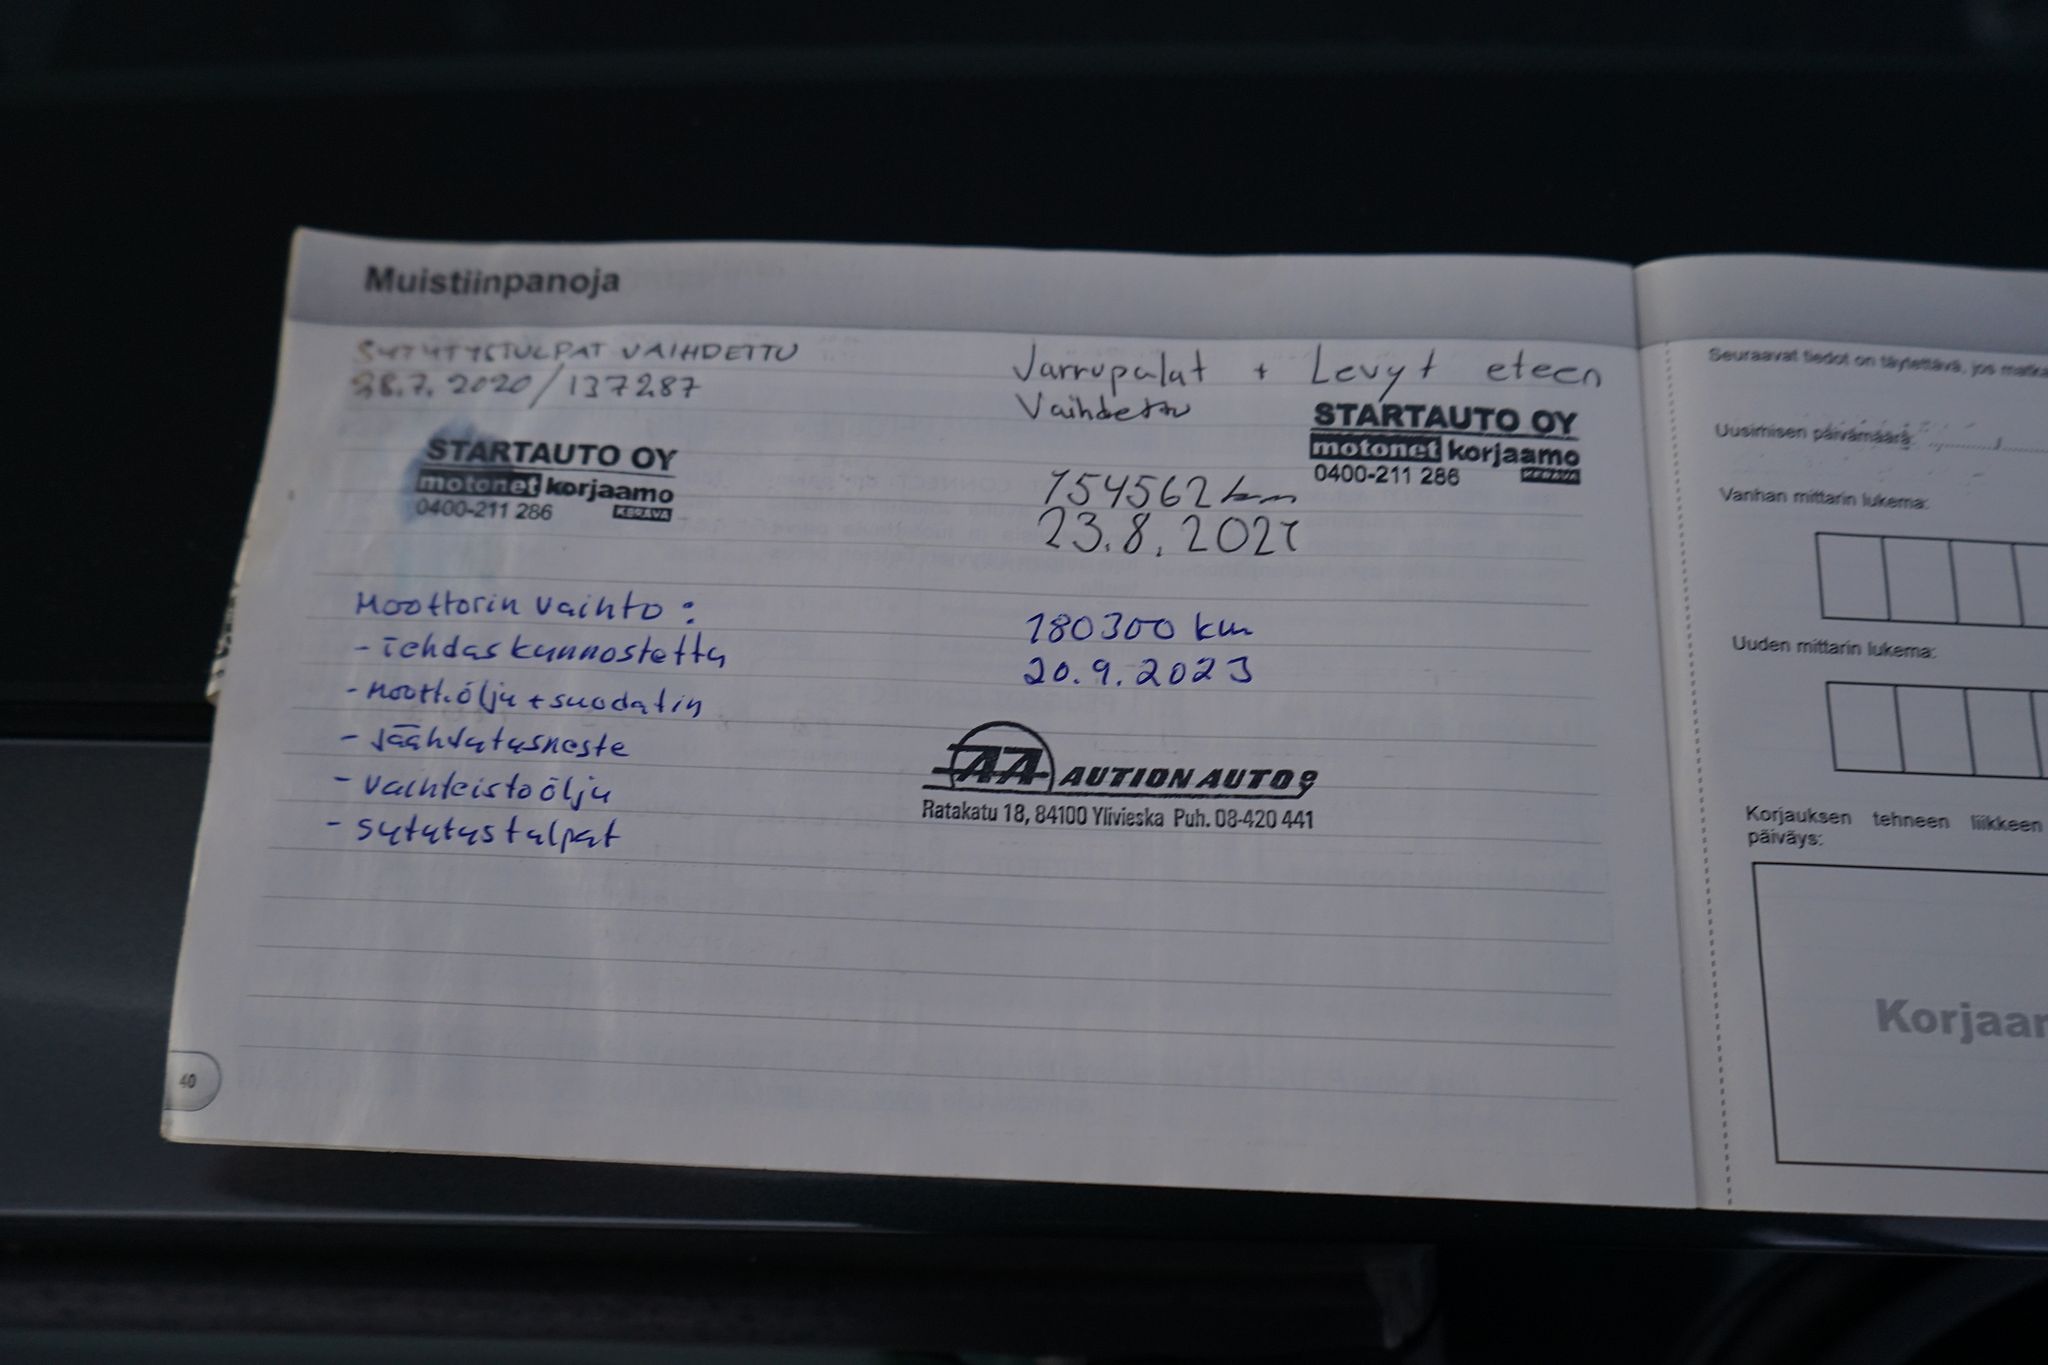 Muistiinpanoja
SYTYTYSTULPAT VAIHDETTU
28.7.2020/137287
STARTAUTO OY
motonet korjaamo
0400-211 286 KERAVA
Jarrupalat + Levyt eteen
Vaihdettu
STARTAUTO OY
motonet korjaamo
0400-211 286 KERAVA
154562 km
23.8.2021
Moottorin vaihto:
- Tehdaskunnostettu
- Moott.öljy + suodatin
- Jäähdytysneste
- Vaihteistoöljy
- Sytytystulpat
180300 km
20.9.2023
AA AUTION AUTO
Ratakatu 18, 84100 Ylivieska Puh. 08-420 441
40
Seuraavat tiedot on täytettävä, jos
Uusimisen päivämäärä:
Vanhan mittarin lukema:
Uuden mittarin lukema:
Korjauksen tehneen liikkeen
päiväys: